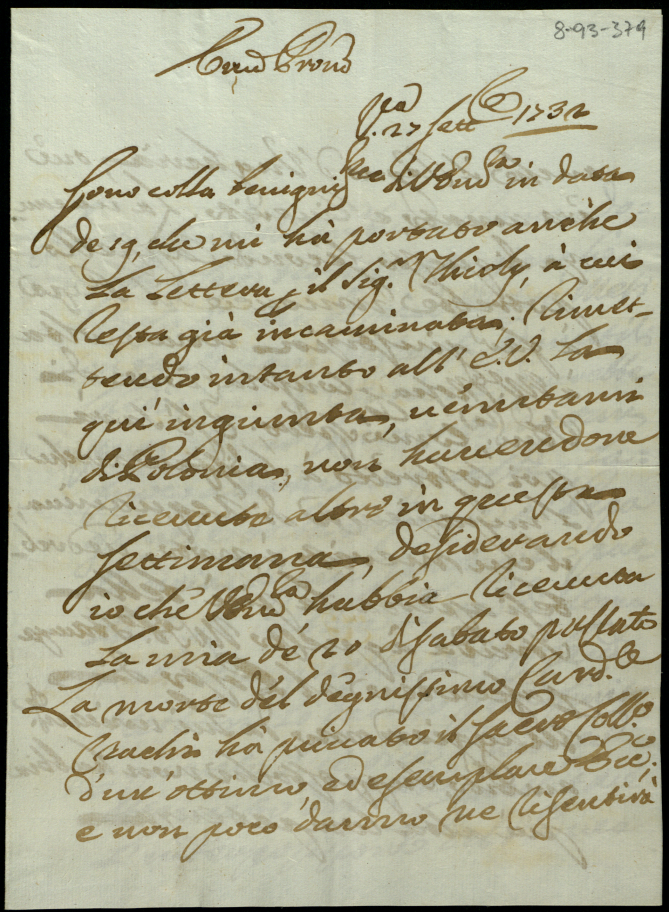 8-93-374
V.ª 27 Sett.e 1732
Sono colla benignis in data
de 19, che mi hà portato anche
La Lettera p il Sig.r Thioly, à cui
resta già incaminata. Rimet-
tendo intanto all' E.V. La
quì ingiunta, venutami
di Polonia, non havendone
ricevute altre in questa
settimana, desiderando
io che habbia ricevuta
La mia de 20 di sabato passato
La morte del degnissimo Card.le
hà privato il Sacro Coll.o
d'un ottimo, ed esemplare
e non poco danno ne risentirà